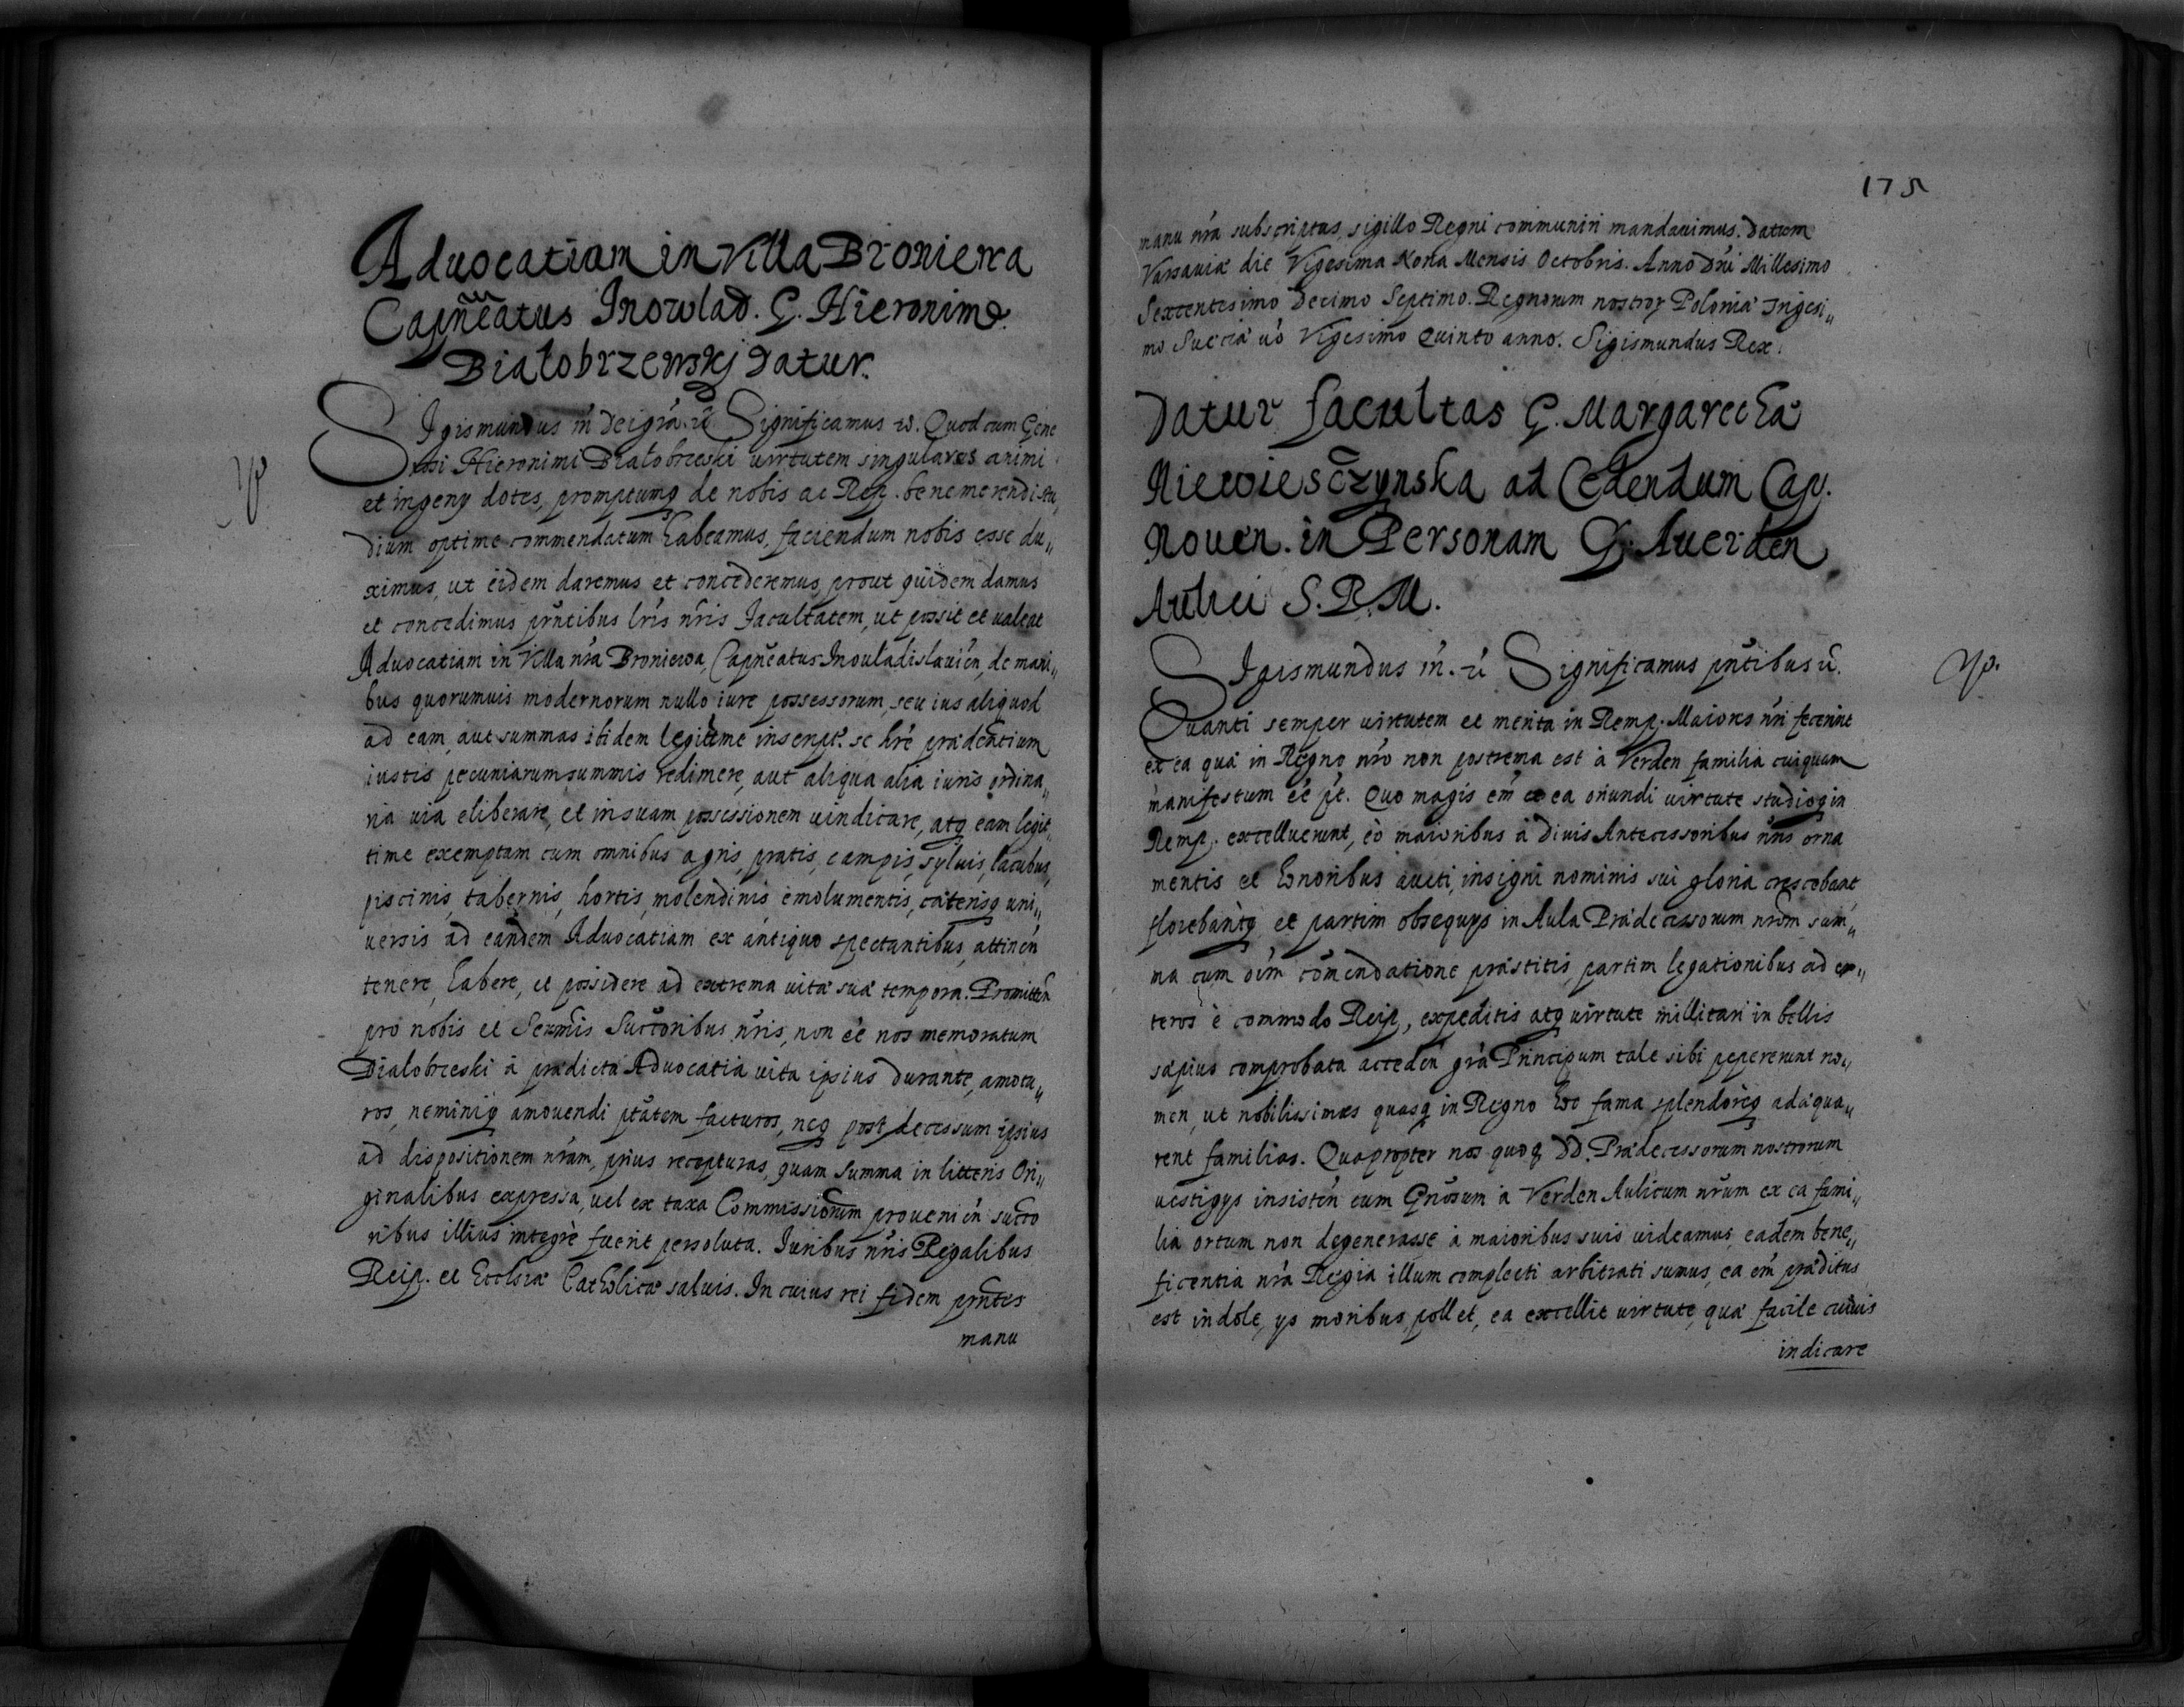 Aduocatiam in Villa Broniewa
Capn̄eatus Inowlad. G. Hieronimo
Białobrzewskj datur.
SIgismundus m̄ dei gr̄a. Significamus. Quod cum Gene
rosi Hieronimi Białobrzeski uirtutem singulares animi
et ingenÿ dotes, promptumq de nobis ac Rep. benemerendi stu„
dium optime commendatum habeamus, faciendum nobis esse du„
ximus, ut eidem daremus et concederemus, prout quidem damus
et concedimus pn̄tibus lr̄is nr̄is facultatem, ut possit et ualeat
Aduocatiam in Villa nr̄a Broniewa, Capn̄eatus Inouladislauien̄, de mani„
bus quorumuis modernorum nullo iure possessorum, seu ius aliquod
ad eam, aut summas ibidem legitime inscript. se hr̄e prædentium
iustis pecuniarum summis redimere, aut aliqua alia iuris ordina„
ria uia eliberare, et in suam possessionem uindicare, atq eam legit„
time exemptam cum omnibus agris, pratis, campis, syluis, lacubus,
piscinis, tabernis, hortis, molendinis emolumentis, cæterisq uni„
uersis ad eandem Aduocatiam ex antiquo spectantibus, attinen̄
tenere, habere, et possidere ad extrema uitæ suæ tempora. Promitten̄
pro nobis et Sermis Suctoribus nr̄is, non ēe nos memoratum
Białobrzeski à prædicta Aduocatia uita ipsius durante, amotu„
ros, neminiq amouendi ptātem facturos, neq post decessum ipsius
ad dispositionem nr̄am, prius recepturos, quam summa in litteris Ori„
ginalibus expressa, uel ex taxa Commissiorum prouenien̄ succo
ribus illius integrè fuerit persoluta. Iuribus nr̄is Regalibus
Reip. et Ecclsiæ Catholicæ saluis. In cuius rei fidem pn̄tes
manu
175
manu nr̄a subscriptas, sigillo Regni communiri mandauimus. Datum
Varsauiæ die Vigesima Nona Mensis Octobris. Anno Dn̄i Millesimo
Sexcentesimo Decimo Septimo. Regnorum nostror Poloniæ Trigesi„
mo Sueciæ uō Vigesimo Quinto anno. Sigismundus Rex.
Datur facultas G. Margarethæ
Niewiesczynska ad Cedendum Cap.
Nouen. in Personam G. Auerden
Aulici S. R. M.
SIgismundus m̄. Significamus pn̄tibus
Quanti semper uirtutem et merita in Remp. Maiores nr̄i fecerint
ex ea quæ in Regno nr̄o non postrema est à Verden familia cuiquam
manifestum ēe pt. Quo magis em̄ ex ea oriundi uirtute studioq in
Remp. excelluerunt, eò maioribus à Diuis Antecessoribus nr̄is orna
mentis et honoribus aucti, insigni nominis sui gloria crescebant
florebantq et partim obsequÿs in Aula Prædecessorum nr̄orum sum„
ma cum oīm com̄endatione præstitis, partim legationibus ad ex„
teros è commodo Reip, expeditis atq uirtute millitari in bellis
sæpius comprobata acceden̄ gr̄a Principum tale sibi pepererunt no„
men, ut nobilissimas quasq in Regno hoc fama splendoreq adæqua„
rent familias. Quapropter nos quoq DD. Prædecessorum nostrorum
uestigÿs insisten̄ cum Gn̄osum à Verden Aulicum nr̄um ex ea fami„
lia ortum non degenerasse à maioribus suis uideamus, eadem bene„
ficentia nr̄a Regia illum complecti arbitrati sumus, ea em̄ præditus
est indole, ÿs moribus, pollet, ea excellit uirtute, quæ facile cuiuis
indicare